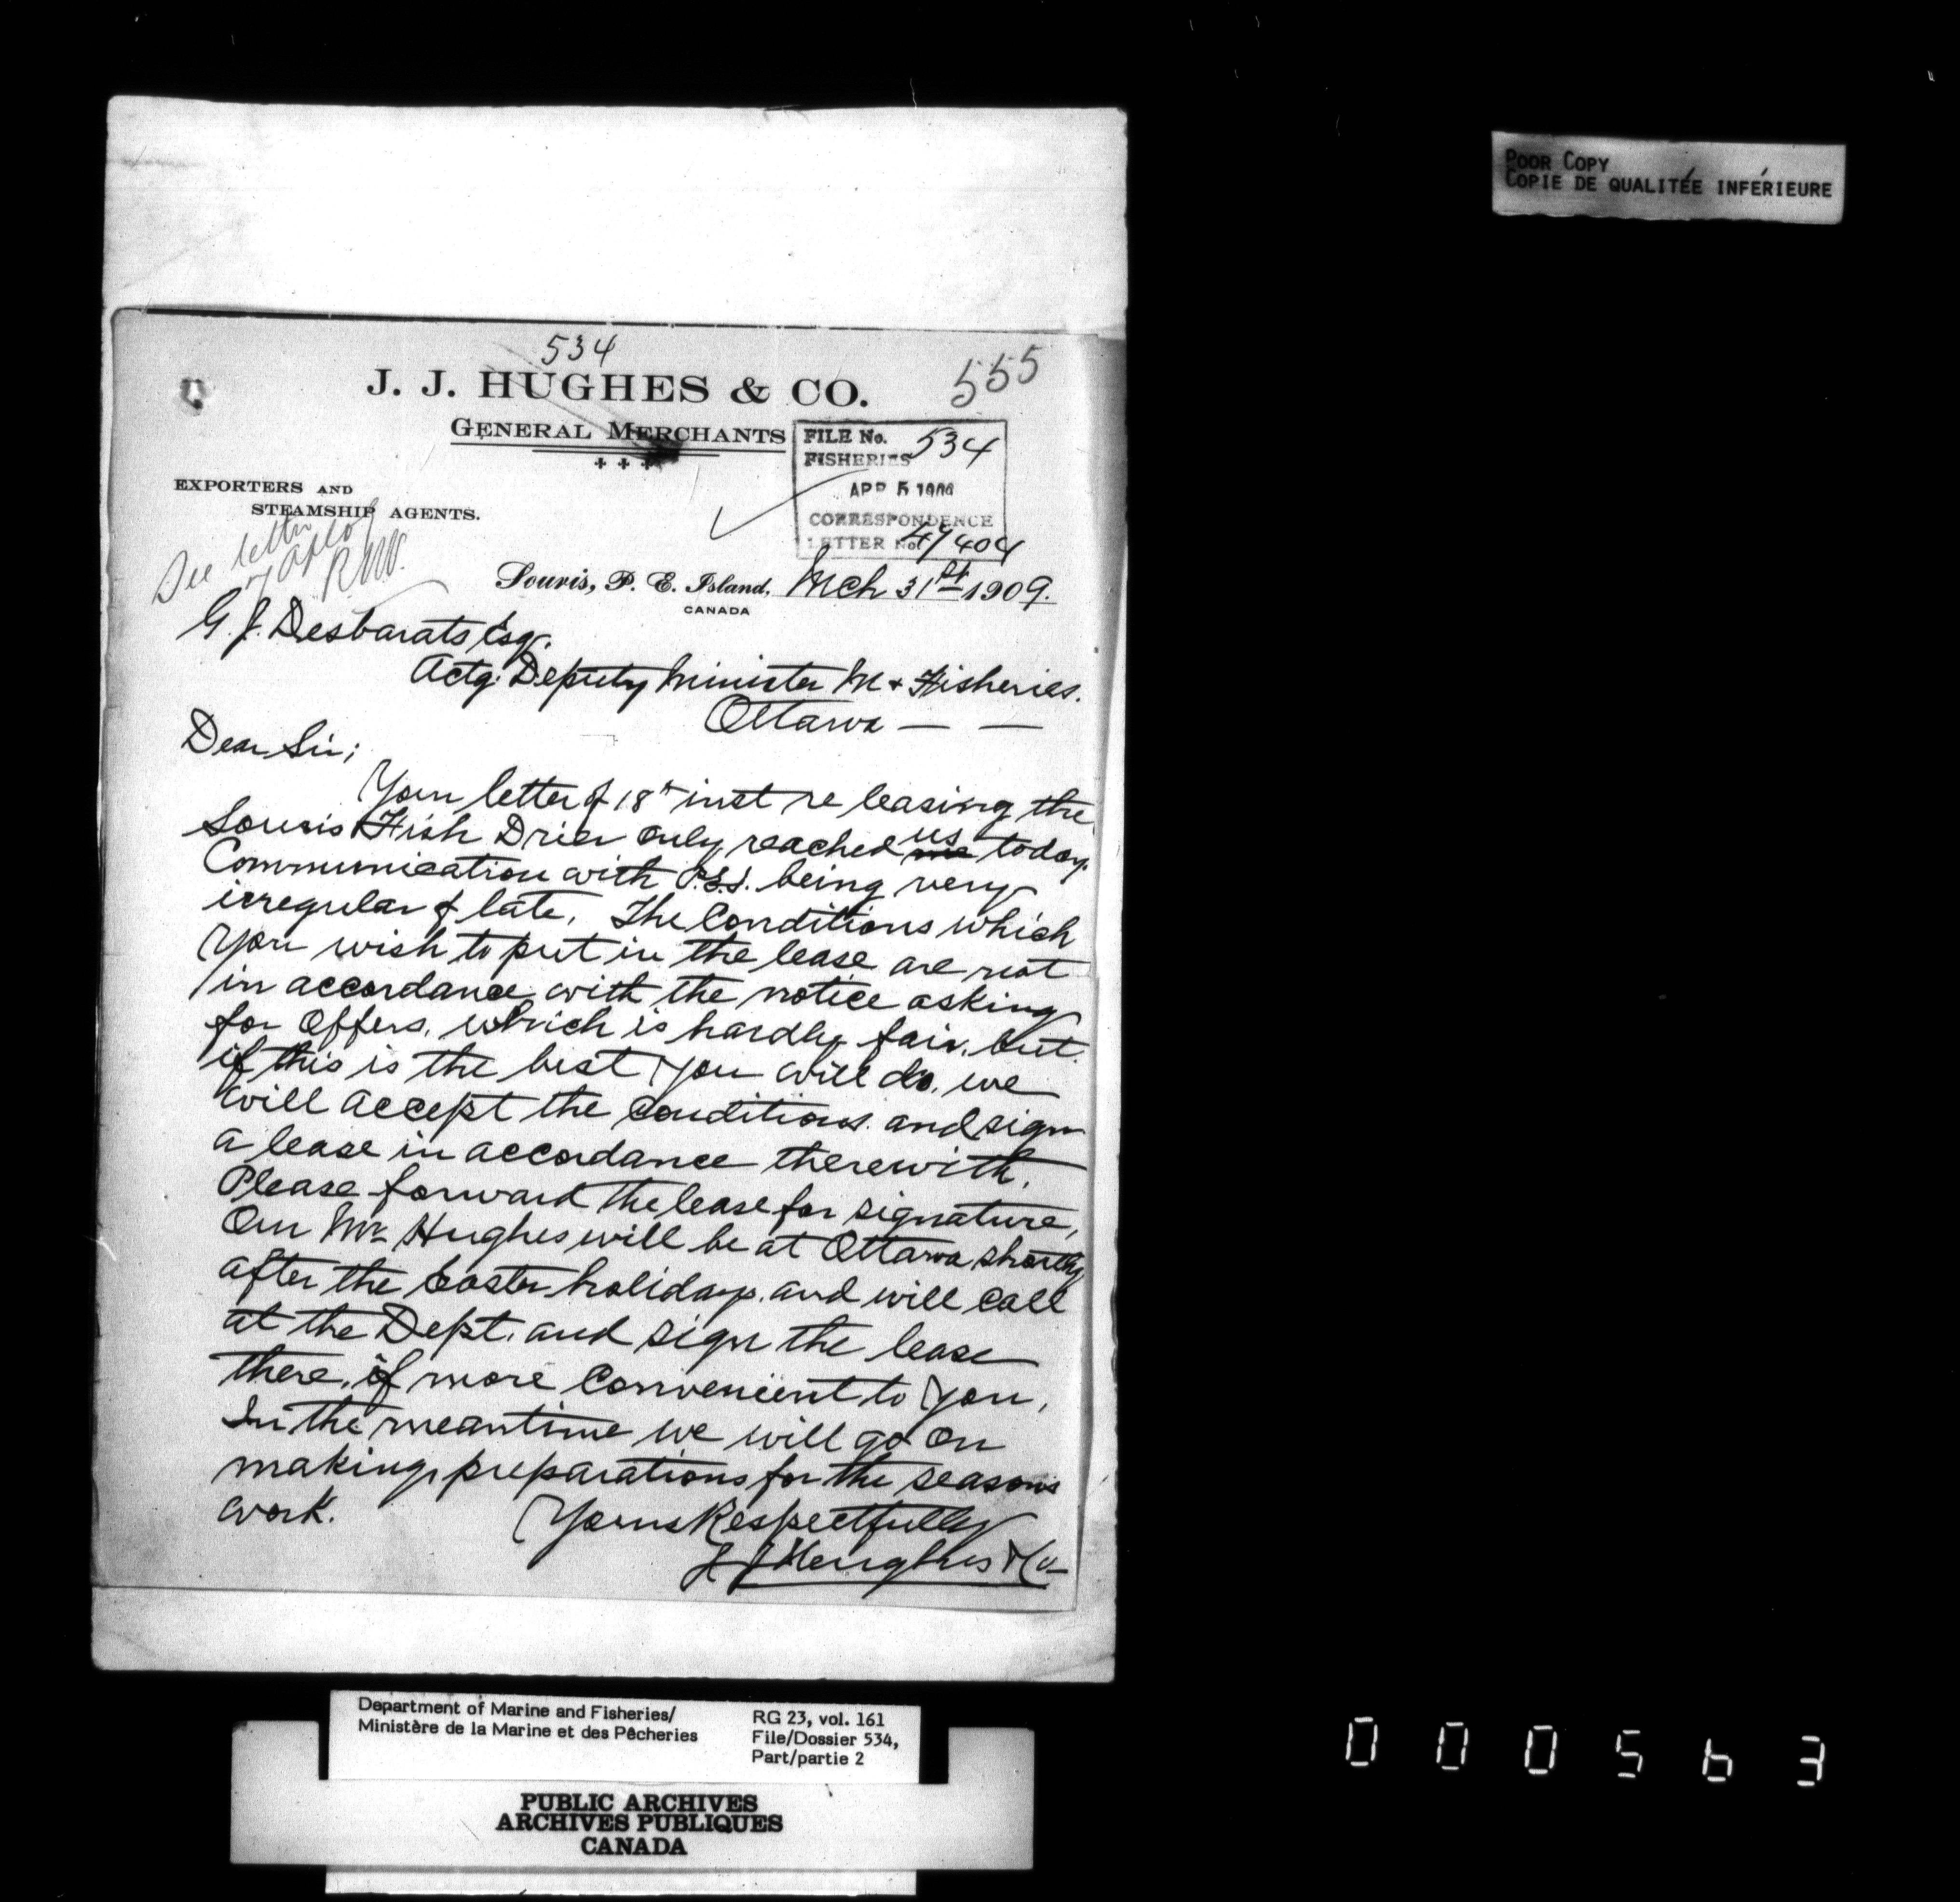 POOR COPY
COPIE DE QUALITÉE INFÉRIEURE
534
555
J. J. HUGHES & CO.
GENERAL MERCHANTS
FILE No. 534
FISHERIES
APR 5 1909
CORRESPONDENCE
LETTER No.
EXPORTERS AND
STEAMSHIP AGENTS.
See letter
of
Souris, P. E. Island, Mch 31st 1909.
CANADA
G. J. Desbarats Esq.
Actg. Deputy Minister M & Fisheries.
Ottawa — —
Dear Sir;
Your letter of 18th inst re leasing the
Souris Fish Drier only reached us me today.
Communication with P.E.I. being very
irregular & late. The Conditions which
you wish to put in the lease are not
in accordance with the notice asking
for offers, which is hardly fair, but
if this is the best you will do, we
will accept the conditions and sign
a lease in accordance therewith.
Please forward the lease for signature,
Our Mr Hughes will be at Ottawa shortly
after the Easter holidays, and will call
at the Dept. and sign the lease
there, if more convenient to you,
In the meantime we will go on
making preparations for the seasons
work.
Yours Respectfully
J J Hughes & Co
Department of Marine and Fisheries/
Ministère de la Marine et des Pêcheries
RG 23, vol. 161
File/Dossier 534,
Part/partie 2
PUBLIC ARCHIVES
ARCHIVES PUBLIQUES
CANADA
000563